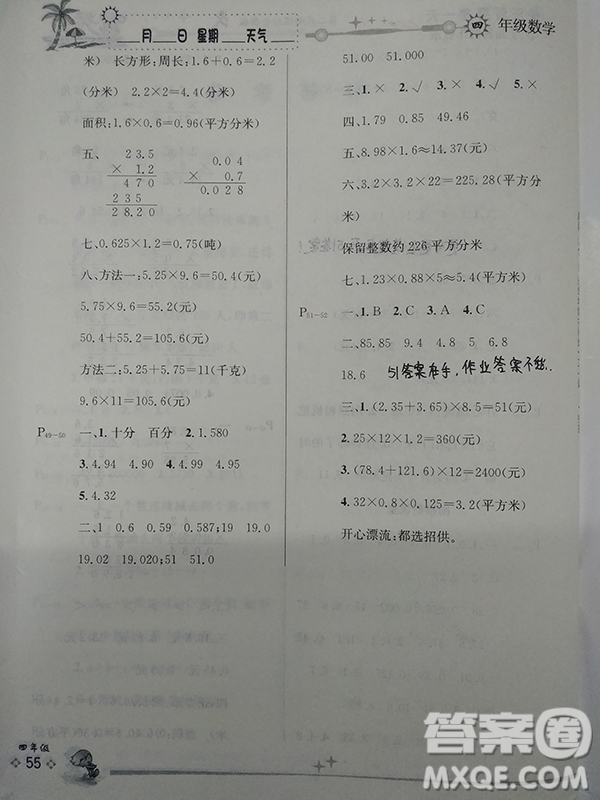 月 日 星期 天气
四 年级数学
米) 长方形:周长:1.6+0.6=2.2
(分米) 2.2×2=4.4(分米)
面积:1.6×0.6=0.96(平方分米)
五、 23.5 0.04
× 1.2 × 0.7
470 0.028
235
28.20
七、0.625×1.2=0.75(吨)
八、方法一:5.25×9.6=50.4(元)
5.75×9.6=55.2(元)
50.4+55.2=105.6(元)
方法二:5.25+5.75=11(千克)
9.6×11=105.6(元)
P49-50 一、1.十分 百分 2.1.580
3.4.94 4.96 4.4.99 4.95
5.4.32
二、1 0.6 0.59 0.587;19 19.0
19.02 19.020;51 51.0
51.00 51.000
三、1.× 2.√ 3.√ 4.× 5.×
四、1.79 0.85 49.46
五、8.98×1.6≈14.37(元)
六、3.2×3.2×22=225.28(平方分
米)
保留整数约226平方分米
七、1.23×0.88×5≈5.4(平方米)
P51-52 一、1.B 2.C 3.A 4.C
二、85.85 9.4 4.8 5 6.8
18.6 51答案在手,作业答案不愁.
三、1.(2.35+3.65)×8.5=51(元)
2.25×12×1.2=360(元)
3.(78.4+121.6)×12=2400(元)
4.32×0.8×0.125=3.2(平方米)
开心漂流:都选招供。
四年级
55
答案圈
MXQE.COM